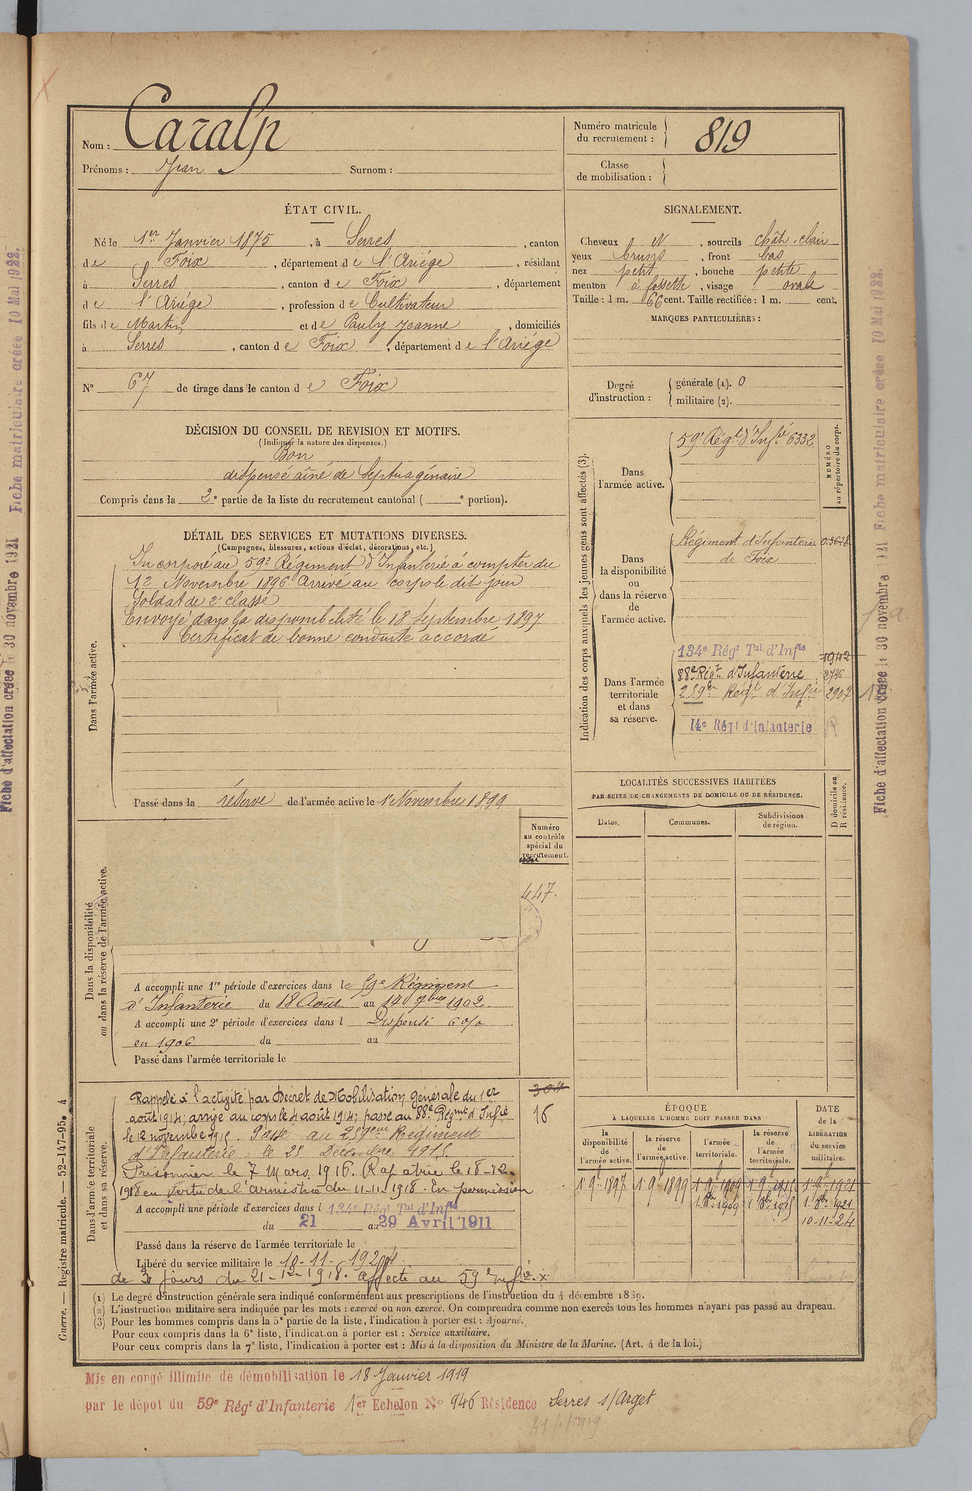 Nom : Caralp
Prénoms : Jean Surnom :
Numéro matricule du recrutement : 819
Classe de mobilisation :
ÉTAT CIVIL.
Né le 1er Janvier 1875, à Serres, canton
de Foix, département de l'Ariège, résidant
à Serres, canton de Foix, département
de l'Ariège, profession de Cultivateur
fils de Martin et de Pauly Jeanne, domiciliés
à Serres, canton de Foix, département de l'Ariège
N° 67 de tirage dans le canton de Foix
SIGNALEMENT.
Cheveux et, sourcils chât. clair
yeux bruns, front bas
nez petit, bouche petite
menton à fossette, visage ovale
Taille : 1 m. 66 cent. Taille rectifiée : 1 m. cent.
MARQUES PARTICULIÈRES :
Degré d'instruction : générale (1). 0
militaire (2).
DÉCISION DU CONSEIL DE REVISION ET MOTIFS.
(Indiquer la nature des dispenses.)
Bon
dispensé aîné de Septuagénaire
Compris dans la 2e partie de la liste du recrutement cantonal ( e portion).
DÉTAIL DES SERVICES ET MUTATIONS DIVERSES.
(Campagnes, blessures, actions d'éclat, décorations, etc.)
Dans l'armée active.
Incorporé au 59e Régiment d'Infanterie à compter du
12 Novembre 1896 Arrivé au corps le dit jour
Soldat de 2e classe
Envoyé dans la disponibilité le 18 Septembre 1897
Certificat de bonne conduite accordé
Passé dans la réserve de l'armée active le 1er Novembre 1899
Indication des corps auxquels les jeunes gens sont affectés (3).
NUMÉRO au répertoire du corps.
Dans l'armée active.
59e Régt d'Infie 6332
Dans la disponibilité ou dans la réserve de l'armée active.
Régiment d'Infanterie
de Foix
Dans l'armée territoriale et dans sa réserve.
134e Régt Tal d'Infie
88e Régt d'Infanterie
259e Régt d'Infie 2907
14e Régt d'Infanterie
LOCALITÉS SUCCESSIVES HABITÉES
PAR SUITE DE CHANGEMENTS DE DOMICILE OU DE RÉSIDENCE.
Dates. Communes. Subdivisions de région. D domicile ou R résidence.
Dans la disponibilité ou dans la réserve de l'armée active.
Numéro au contrôle spécial du recrutement.
447.
A accompli une 1re période d'exercices dans le 59e Régiment
d'Infanterie du 18 Août au 14 7bre 1902.
A accompli une 2e période d'exercices dans l Dispensé 6 %
en 1906 du au
Passé dans l'armée territoriale le
Dans l'armée territoriale et dans sa réserve.
16
Rappelé à l'activité par Décret de Mobilisation générale du 1er
août 1914; arrivé au corps le 4 août 1914; passé au 88e Régimt d'Infie
le 12 novembre 1915. Passé au 259ème Régiment
d'Infanterie le 25 Décembre 1915.
Prisonnier le 7 Mars 1916. Rapatrié le 18-12-
1918 en vertu de l'armistice du 11-11-1918. En permission
A accompli une période d'exercices dans l 134e Régt Tal d'Infie
du 21 au 29 Avril 1911
Passé dans la réserve de l'armée territoriale le
Libéré du service militaire le 10-11-1924
de 30 jours du 21-12-1918. Affecté au 59e
ÉPOQUE
À LAQUELLE L'HOMME DOIT PASSER DANS
la disponibilité de l'armée active. la réserve de l'armée active. l'armée territoriale. la réserve de l'armée territoriale.
DATE de la LIBÉRATION du service militaire.
1 9-1897 1 9-1899 1 9-1909 1 9-1915 1 9-1921
1 8bre 1909 1 8bre 1915 1 8bre 1921
10-11-24
(1) Le degré d'instruction générale sera indiqué conformément aux prescriptions de l'instruction du 4 décembre 1889.
(2) L'instruction militaire sera indiquée par les mots : exercé ou non exercé. On comprendra comme non exercés tous les hommes n'ayant pas passé au drapeau.
(3) Pour les hommes compris dans la 5e partie de la liste, l'indication à porter est : Ajourné.
Pour ceux compris dans la 6e liste, l'indication à porter est : Service auxiliaire.
Pour ceux compris dans la 7e liste, l'indication à porter est : Mis à la disposition du Ministre de la Marine. (Art. 4 de la loi.)
Guerre. — Registre matricule. — 52-147-95. 4
Mis en congé illimité de démobilisation le 18 Janvier 1919
par le dépôt du 59e Régt d'Infanterie 1er Echelon N° 946 Résidence Serres s/Arget
Fiche d'affectation créée le 30 novembre 1921 Fiche matriculaire créée 10 Mai 1922.
Fiche d'affectation créée le 30 novembre 1921 Fiche matriculaire créée 10 Mai 1922.